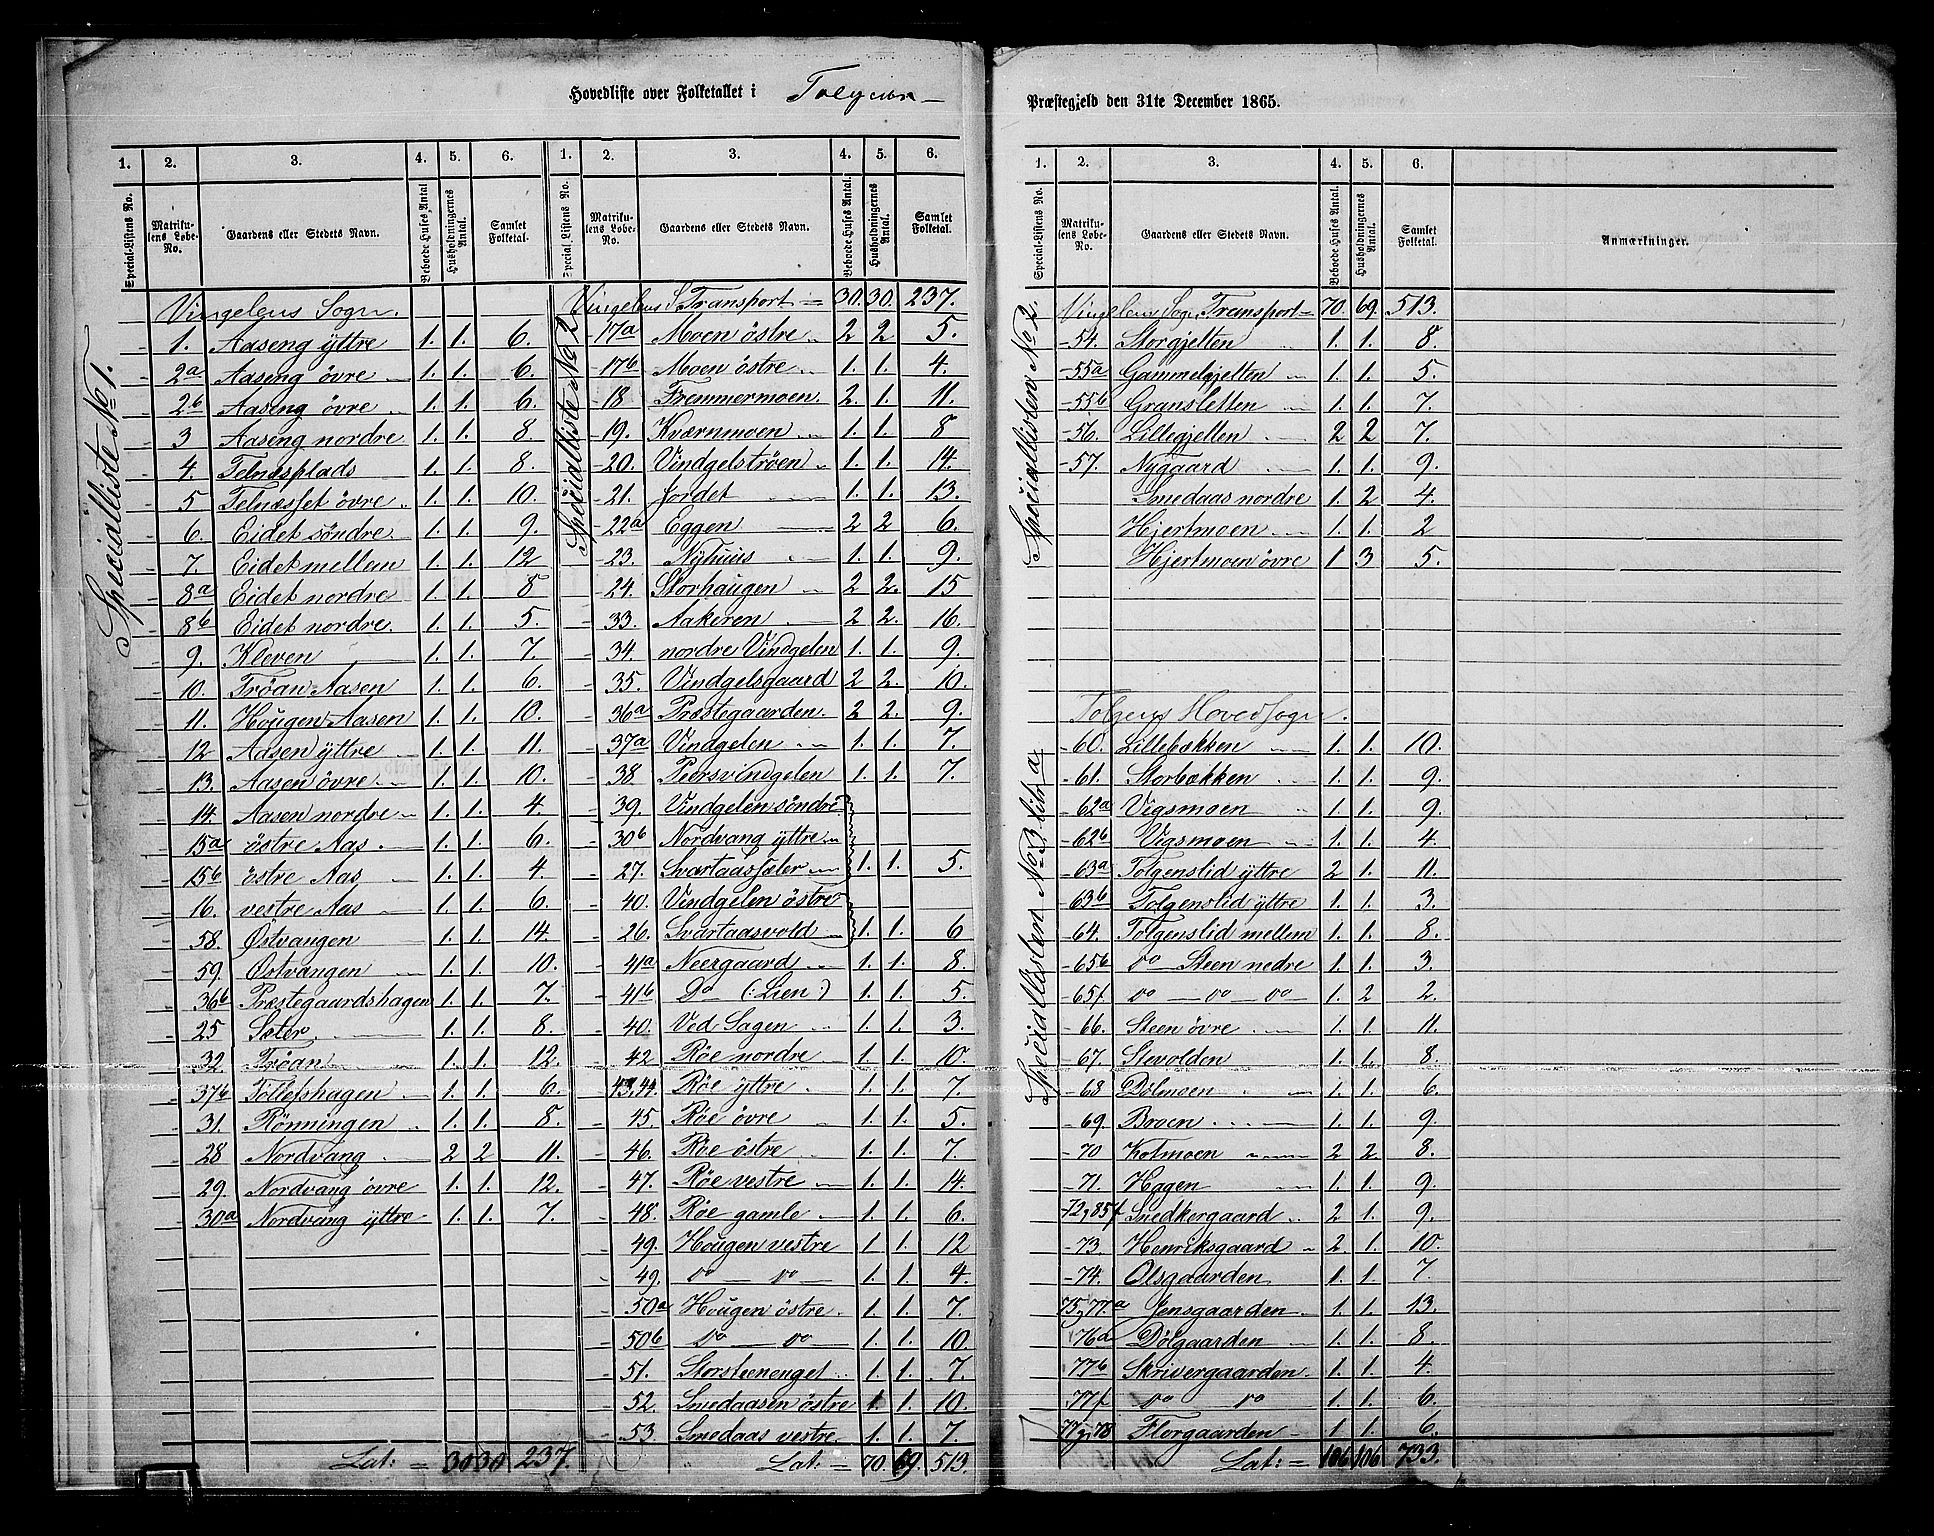 Hovedliste over Folketallet i Tolgens
Præstegjeld den 31te December 1865.
1. 2. 3. 4. 5. 6. 1. 2. 3. 4. 5. 6.
Special-Listens No. Matrikulens Løbe-No. Gaardens eller Stedets Navn. Beboede Huses Antal. Husholdningernes Antal. Samlet Folketal. Special-Listens No. Matrikulens Løbe-No. Gaardens eller Stedets Navn. Beboede Huses Antal. Husholdningernes Antal. Samlet Folketal.
Specialliste No 1.
Vingelens Sogn.
1. Aaseng yttre 1. 1. 6.
2a Aaseng övre 1. 1. 6.
2b Aaseng övre 1. 1. 6.
3 Aaseng nordre 1. 1. 8
4. Telnæsplads 1. 1. 8.
5 Telnæsset övre 1. 1. 10.
6. Eidet söndre 1. 1. 9.
7. Eidet mellem 1. 1. 12
8a Eidet nordre 1. 1. 8
8b Eidet nordre. 1. 1. 5.
9. Kleven 1. 1. 7.
10. Tröan Aasen 1. 1. 6.
11. Hougen Aasen 1. 1. 10.
12 Aasen yttre 1. 1. 11.
13. Aasen övre 1. 1. 10.
14. Aasen nordre 1. 1. 4
15a östre Aas 1. 1. 6.
15b östre Aas 1. 1. 4
16. vestre Aas 1. 1. 6.
58. Østvangen 1. 1. 14.
59. Østvangen 1. 1. 10.
36b Præstegaardshagen 1. 1. 7.
25 Sæter 1. 1. 8.
32 Tröan 1. 1. 12.
37b Tollefshagen 1. 1. 6.
31. Rönningen 1. 1. 8.
28 Nordvang 2 2 11.
29. Nordvang övre 1. 1. 12.
30a Nordvang yttre 1. 1. 7.
Lat: = 30 30 237.
Specialliste No 2
Vingelens S. Transport = 30. 30. 237.
17a Moen östre 2 2 5.
17b Moen östre 1. 1. 4.
18 Fremmermoen. 2. 1. 11.
19. Kværnmoen 1. 1. 8
20. Vindgelströen 1. 1. 14.
21. Jordet 1. 1. 13.
22a Eggen 2 2 6.
23. Nyhuus 1. 1. 9.
24. Storhaugen 2 2. 15
33. Aakeren 2 2. 16.
34. nordre Vindgelen 1. 1. 9.
35. Vindgelsgaard 2 2. 10.
36a Præstegaarden. 2 2. 9.
37a Vindgelen 1. 1. 7.
38 Peersvindgelen 1. 1. 7.
39. Vindgelen söndre
30b Nordvang yttre
27. Svartaassæter 1. 1. 5.
40. Vindgelen östre
26. Svartaasvold 1. 1. 6
41a Neergaard 1. 1. 8.
41b Do (: Lien :) 1. 1. 5.
40. Ved Sagen 1. 1. 3.
42 Röe nordre 1. 1. 10.
43,44. Röe yttre 1. 1. 7.
45 Röe övre 1. 1. 5.
46. Röe östre 1. 1. 7.
47. Röe vestre 1. 1. 14.
48. Röe gamle 1. 1. 6.
49. Hougen vestre 1. 1. 12
49. do — do 1. 1. 4.
50a Hougen östre 1. 1. 7.
50b do — do 1. 1. 10.
51. Storsteenenget 1. 1. 7.
52. Smedaasen östre 1. 1. 10.
53. Smedaas vestre 1. 1. 7.
Lat: = 70. 69. 513.
1. 2. 3. 4. 5. 6.
Special-Listens No. Matrikulens Løbe-No. Gaardens eller Stedets Navn. Beboede Huses Antal. Husholdningernes Antal. Samlet Folketal. Anmærkninger.
Speciallisten No 2.
Vingelens Sogn Transport = 70. 69. 513.
54. Storgjelten 1. 1. 8.
55a Gammelgjelten 1. 1. 5.
55b Gransletten 1. 1. 7.
56. Lillegjelten 2 2 7.
57. Nygaard 1. 1. 9.
Smedaas nordre 1. 2 4.
Hjertmoen 1. 1. 2
Hjertmoen övre 1 3 5.
Tolgens Hovedsogn.
Speciallisten No 3 litr a.
60. Lillebækken 1. 1. 10.
61. Storbækken 1. 1. 9.
62a Vigsmoen 1. 1. 9.
62b Vigsmoen 1. 1. 4.
63a Tolgenslid yttre 2. 1. 11.
63b Tolgenslid yttre 1. 1. 3.
64. Tolgenslid mellem 1. 1. 8.
65b do Steen nedre 1. 1. 3.
65f do — do — do 1. 2 2.
66. Steen övre 1. 1. 11.
67. Stevolden 1. 1. 8.
68 Dölmoen 1. 1. 6.
69. Boven 1. 1. 9.
70 Kotmoen 2 2 8.
71. Hagen 1. 1. 9.
72,85f Snedkergaard 2 1. 9.
73. Henriksgaard 2. 1. 10.
74. Olsgaarden 1. 1. 7.
75,77a Jensgaarden 1. 1. 13.
76a Dölgaarden 1. 1. 8.
77b Skrivergaarden 1. 1. 4.
77f do do 1. 1. 6.
77g,78 Florgaarden 1. 1. 6.
Lat: = 106 106 733.